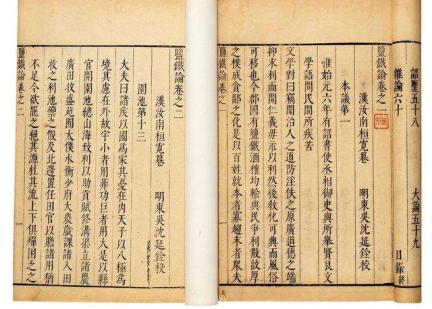 詔聖五十八 大論五十九
雜論六十 目録終
鹽鐵論卷之一
漢汝南桓寬纂 明東吳沈延銓校
本議第一
惟始元六年有詔書使丞相御史與所舉賢良文
學語問民間所疾苦
文學對曰竊聞治人之道防淫佚之原廣道德之端
抑末利而開仁義毋示以利然後教化可興而風俗
可移也今郡國有鹽鐵酒榷均輸與民爭利散敦厚
之樸成貪鄙之化是以百姓就本者寡趨末者衆夫
鹽鐵論卷之一
鹽鐵論卷之二
漢汝南桓寬纂 明東吳沈延銓校
園池第十三
大夫曰諸侯以國為家其憂在內天子以八極為
境其慮在外故宇小者用菲功巨者用大是以縣
官開園池總山海致利以助貢賦修溝渠立諸農
廣田收盛苑囿太僕水衡少府大農歲課諸入田
收之利池籞之假及北邊置任田官以贍諸用猶
不足今欲罷之絕其源杜其流上下俱殫困乏之
鹽鐵論卷之二